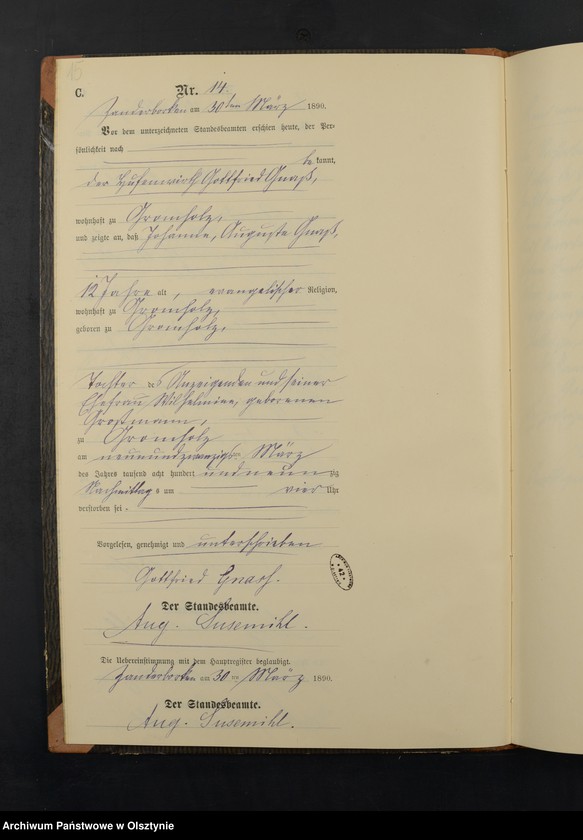 15
C.
Nr. 14.
Zanderborken am 30ten März 1890.
Vor dem unterzeichneten Standesbeamten erschien heute, der Per-
sönlichkeit nach
be kannt,
der Hufenwirth Gottfried Gnaß,
wohnhaft zu Gromholz,
und zeigte an, daß Johanne, Auguste Gnaß,
12 Jahre alt, evangelischer Religion,
wohnhaft zu Gromholz,
geboren zu Gromholz,
Tochter des Anzeigenden und seiner
Ehefrau, Wilhelmine, geborenen
Großmann,
zu Gromholz
am neunundzwanzigsten März
des Jahres tausend acht hundert und neun zig
Nachmittags um vier Uhr
verstorben sei.
Vorgelesen, genehmigt und unterschrieben
Gottfried Gnass.
Der Standesbeamte.
Aug. Susemihl.
Die Uebereinstimmung mit dem Hauptregister beglaubigt.
Zanderborken am 30ten März 1890.
Der Standesbeamte.
Aug. Susemihl.
42
Archiwum Państwowe w Olsztynie